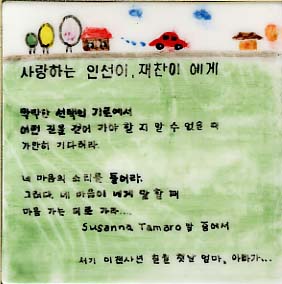 사랑하는 인선이, 재찬이 에게
막막한 선택의 기로에서
어떤 길을 걸어 가야 할 지 알 수 없을 때
가만히 기다려라.
네 마음의 소리를 들어라.
그러다, 네 마음이 네게 말 할 때
마음 가는 데로 가라....
Susanna Tamaro 말 중에서
서기 이천사년 칠월 첫날 엄마, 아빠가...